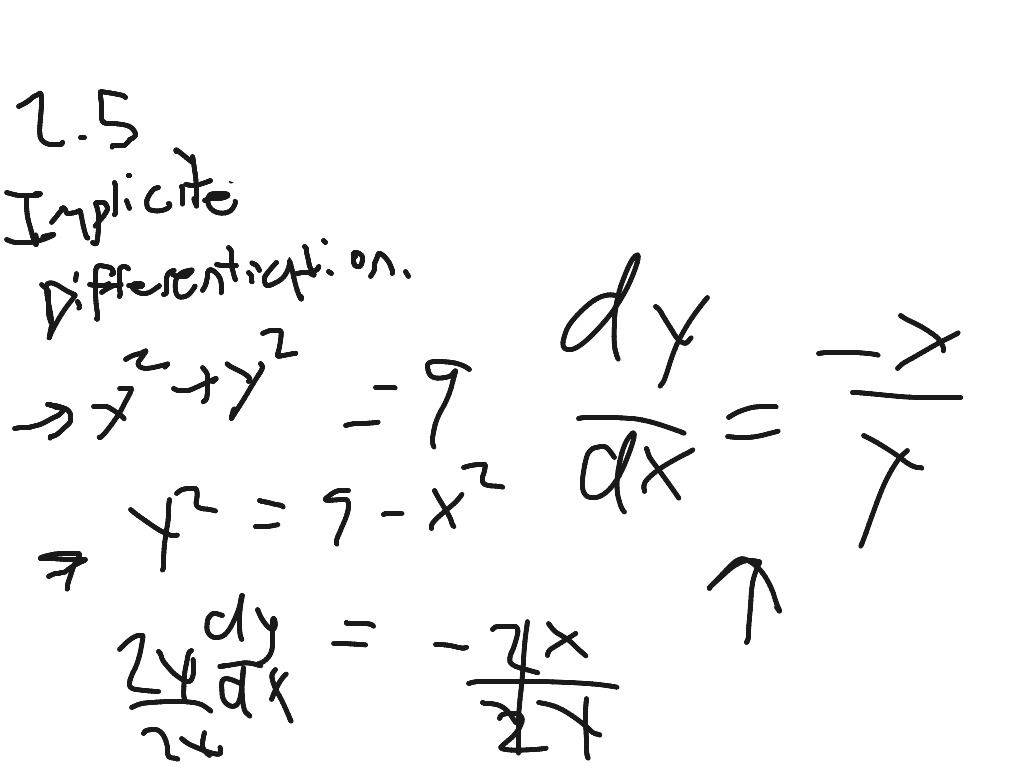 2.5
Implicite
Differentiation.
→ x² + y² = 9
y² = 9 - x²
⇒ 2y/2y dy/dx = - 2x/2y
dy/dx = -x/y
↑